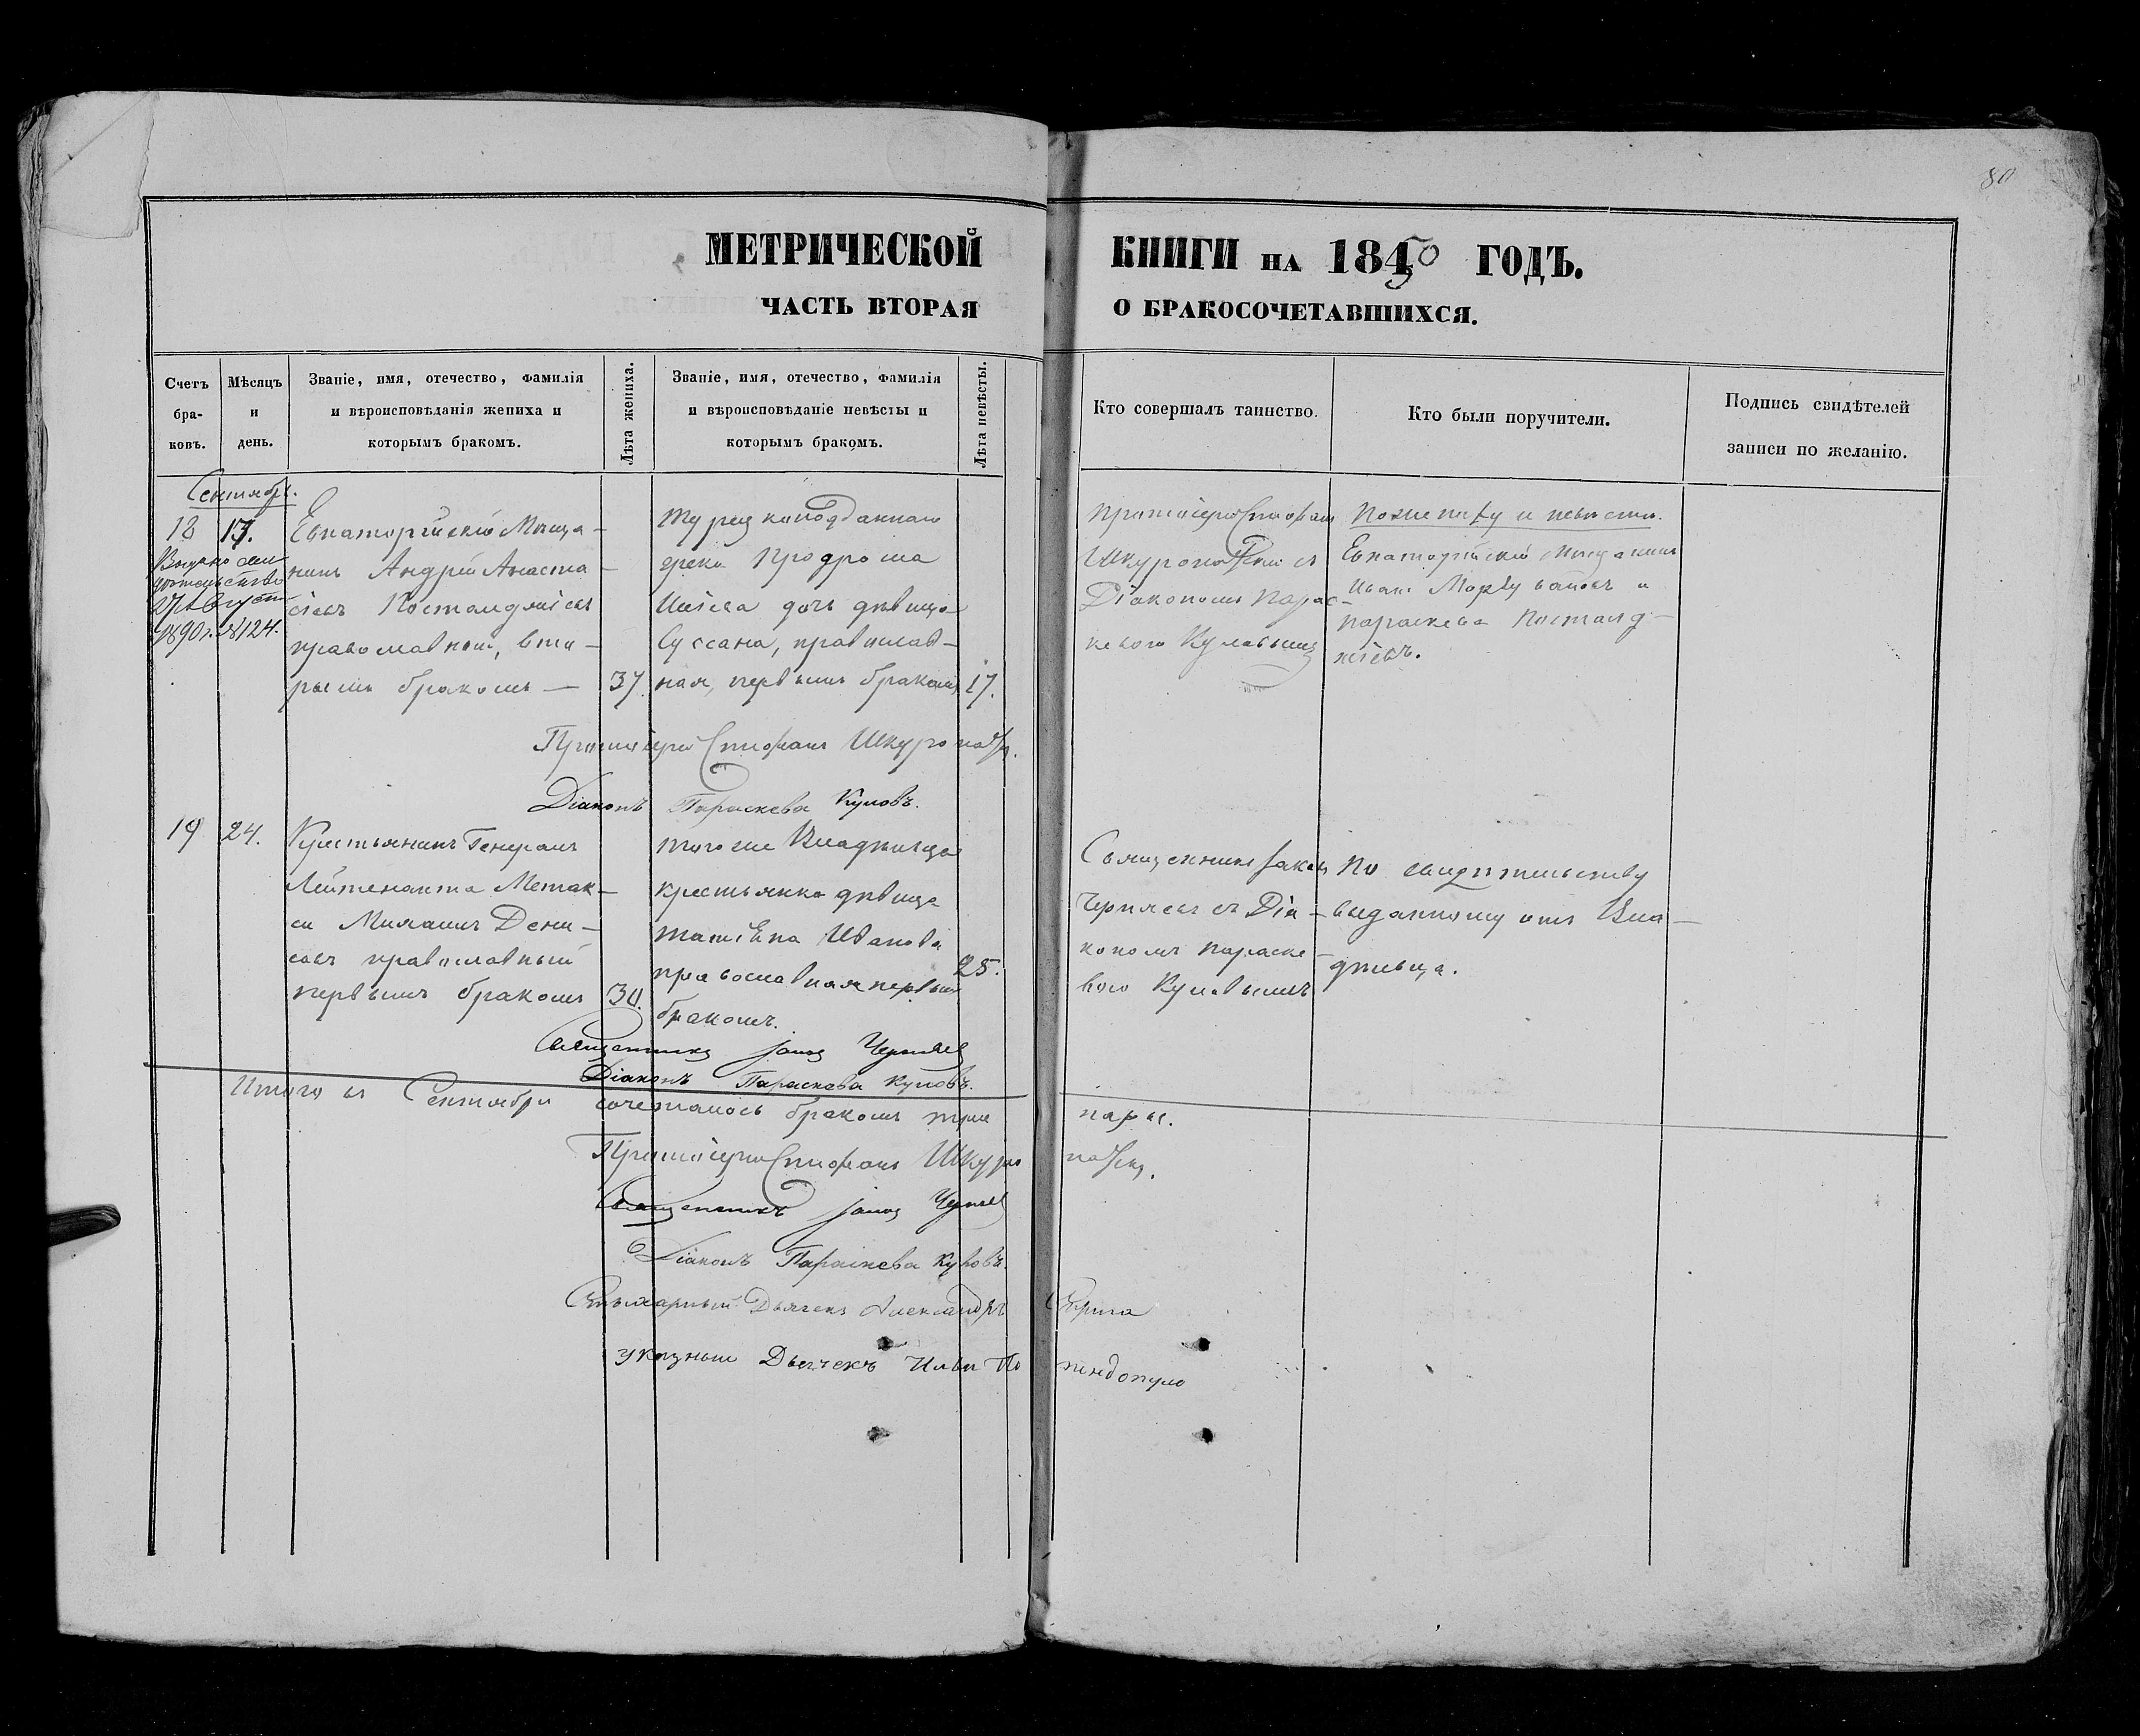 80
МЕТРИЧЕСКОЙ КНИГИ НА 1850 ГОДЪ.
ЧАСТЬ ВТОРАЯ О БРАКОСОЧЕТАВШИХСЯ.
Счетъ бра-ковъ.
Мѣсяцъ и день.
Званіе, имя, отечество, фамилія
и вѣроисповѣданія жениха и
которымъ бракомъ.
Лѣта жениха.
Званіе, имя, отечество, фамилія
и вѣроисповѣданіе невѣсты и
которымъ бракомъ.
Лѣта невѣсты.
Кто совершалъ таинство.
Кто были поручители.
Подпись свидѣтелей
записи по желанію.
Сентябрь.
18 13.
Выдано сви-
дѣтельство
27 Август.
1890 г. №124.
Евпаторійскій Мѣща-
нинъ Андрей Анаста-
сіевъ Костанджіевъ
православный, вто-
рымъ бракомъ — 37.
Турецкоподданнаго
грека Продрома
дочь дѣвица
Суссана, православ-
ная, первымъ бракомъ 17.
Протоіерей Стефанъ
съ
Діакономъ Парас-
кевою Куловымъ
По жениху и невѣстѣ.
Евпаторійскій Мѣщанинъ
Иванъ и
Параскева Костанд-
жіевъ.
Протоіерей Стефанъ
Діаконъ Параскева Куловъ.
19 24.
Крестьянинъ Генералъ
Лейтенанта Метак-
са Дени-
совъ православный
первымъ бракомъ 30.
того же Владѣльца
крестьянка дѣвица
Татіана Иванова
православная первымъ
бракомъ. 25.
Священникъ Іаковъ
Черняевъ съ Діа-
кономъ Параске-
вою Куловымъ
По свидѣтельству
выданному отъ Вла-
дѣльца.
Священникъ Іаковъ Черняевъ
Діаконъ Параскева Куловъ.
Итого въ Сентябрѣ сочеталось бракомъ три пары.
Протоіерей Стефанъ
Священникъ Іаковъ Черняевъ
Діаконъ Параскева Куловъ.
Стихарный Дьячекъ Александръ
указный Дьячекъ Илья